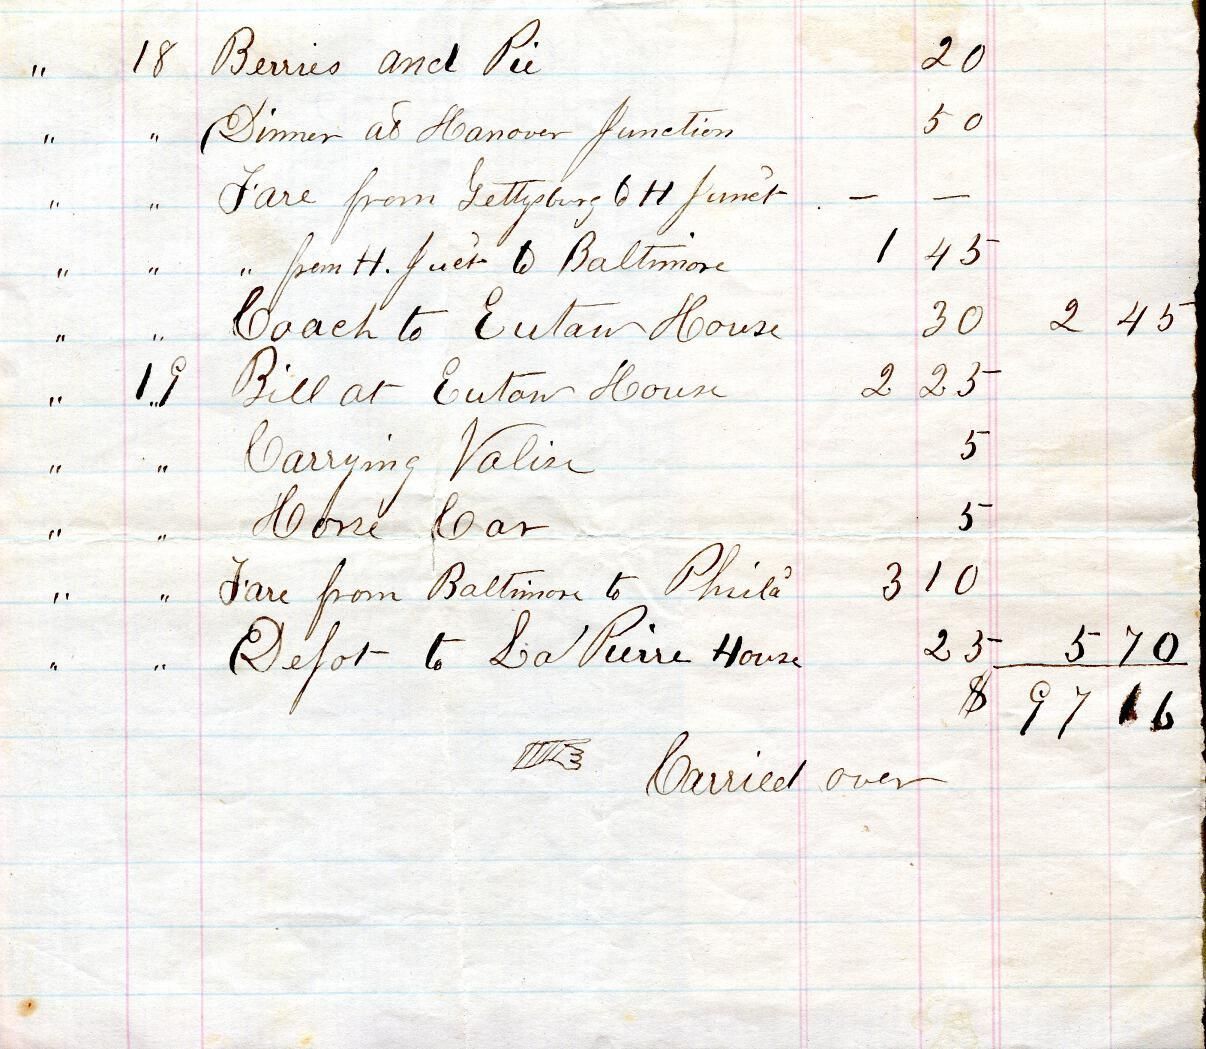 " 18 Berries and Pie 20
" " Dinner at Hanover Junction 50
" " Fare from Gettysburg to H Junc't . — —
" " " from H. Juc't to Baltimore 1 45
" " Coach to Eutaw House 30 2 45
" 19 Bill at Eutaw House 2 25
" " Carrying Valise 5
" " Horse Car 5
" " Fare from Baltimore to Phila' 3 10
" " Depot to La Pierre House 25 5 70
$ 97 16
Carried over